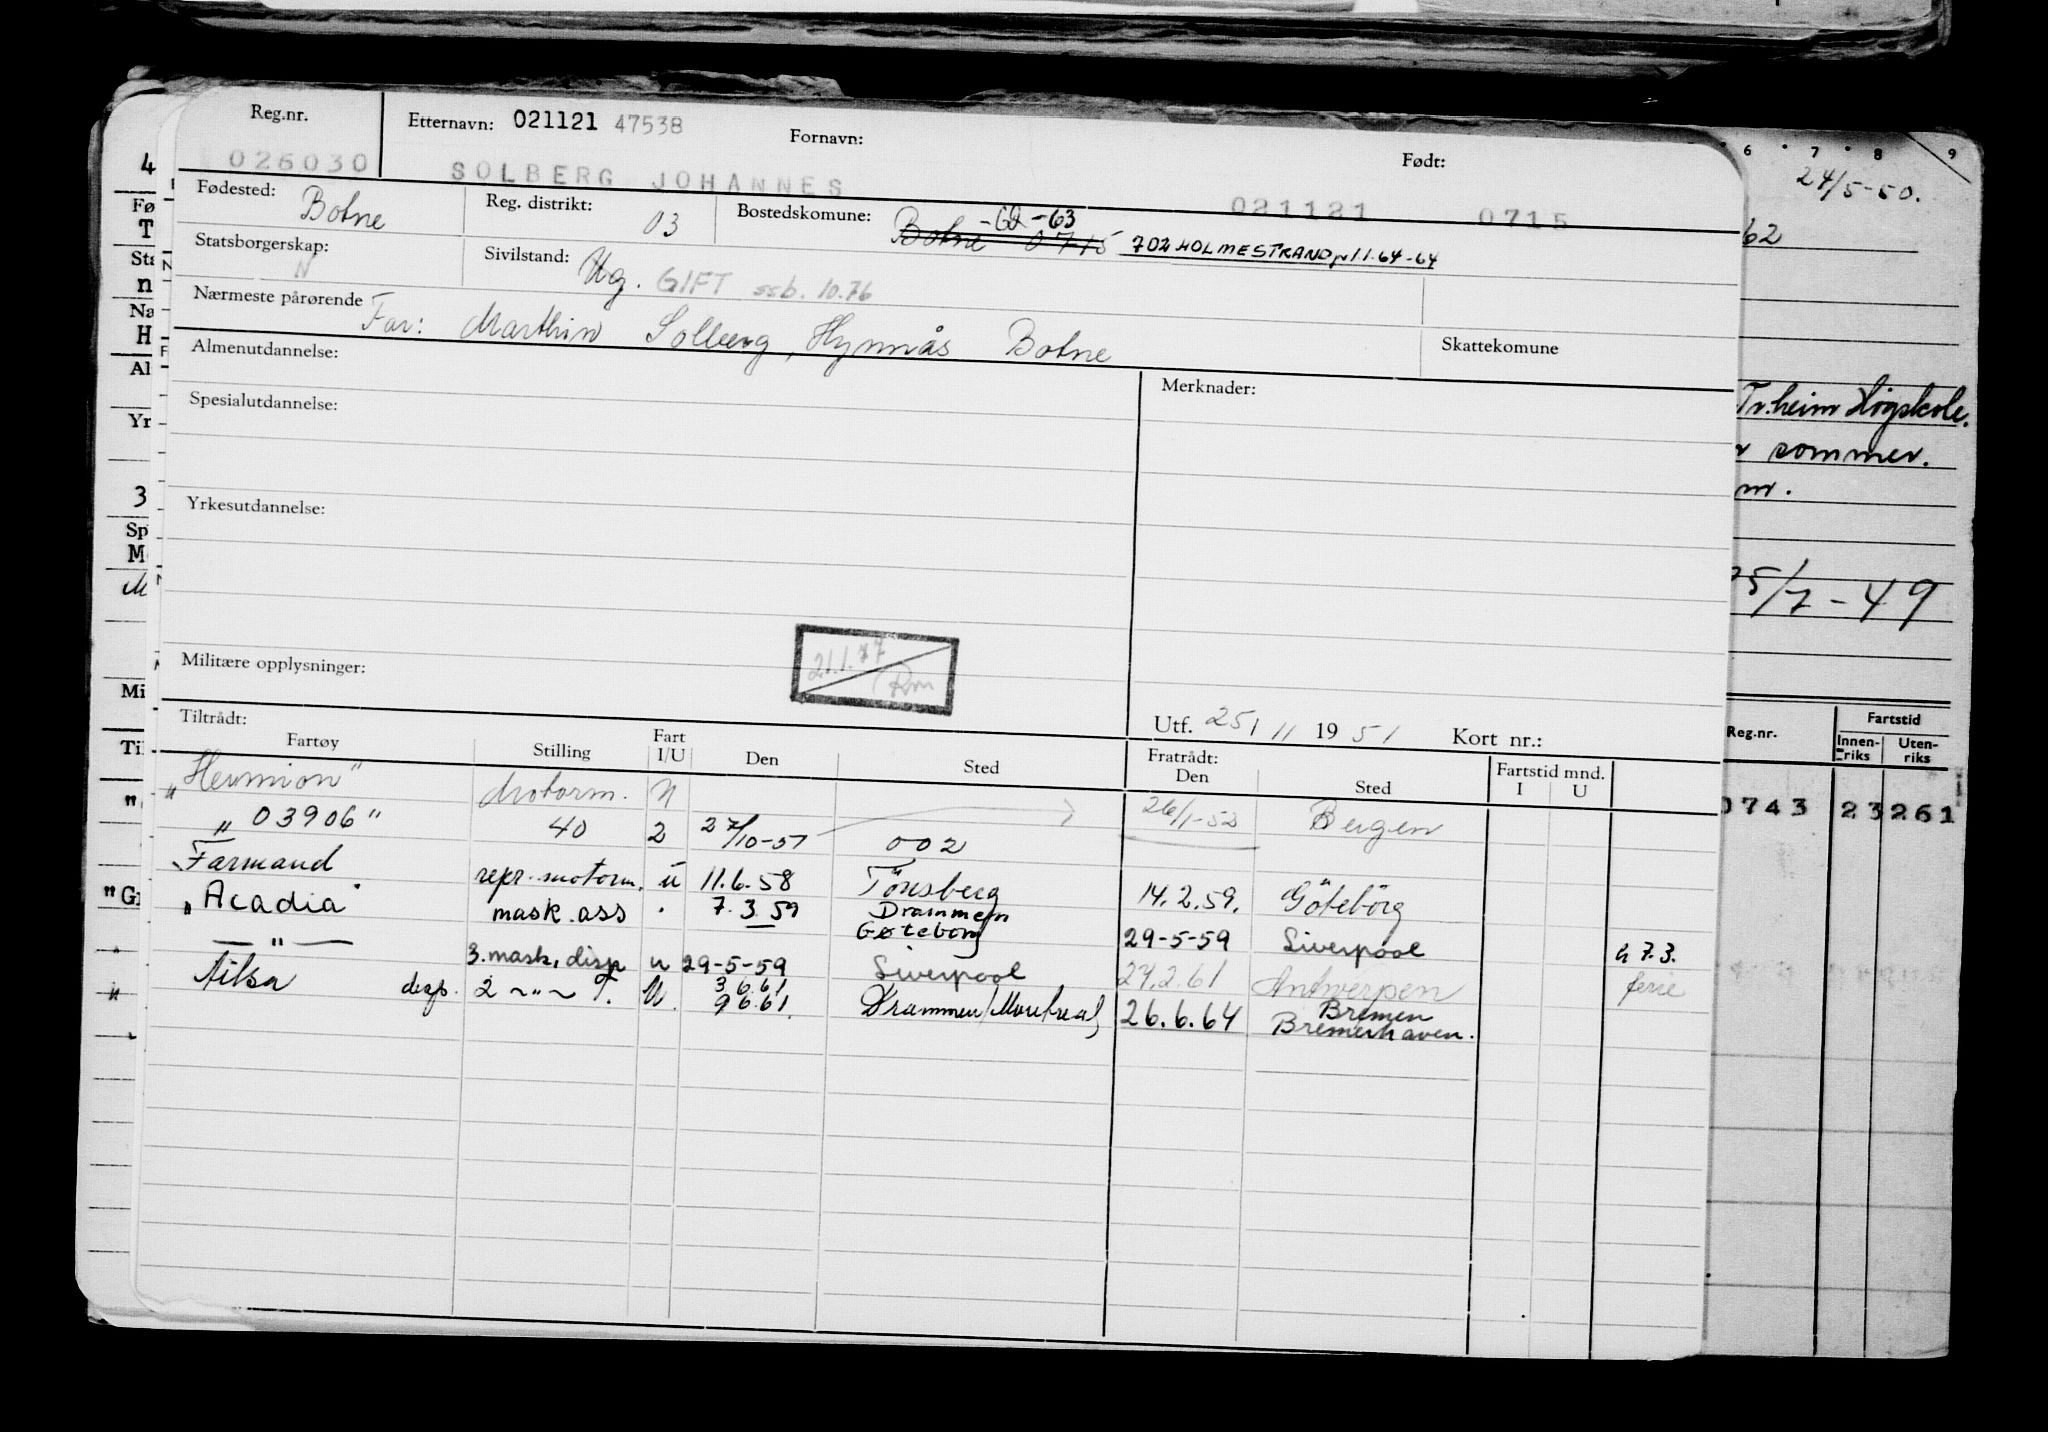 Reg.nr. Etternavn: 021121 47538 Fornavn: Født:
026030 SOLBERG JOHANNES 021121 0715
Fødested: Botne Reg. distrikt: 03 Bostedskomune: Botne 0715 -62-63 702 HOLMESTRAND 1.64-64
Statsborgerskap: N Sivilstand: Ug. GIFT ssb. 10.76
Nærmeste pårørende Far: Marthin Solberg, Hynnås Botne
Almenutdannelse: Skattekomune
Spesialutdannelse: Merknader:
Yrkesutdannelse:
21.1.77
Militære opplysninger:
Tiltrådt: Utf. 25/11 19 51 Kort nr.:
Fartøy Stilling Fart I/U Den Sted Fratrådt: Den Sted Fartstid mnd. I U
"Hermion" Motorm. N 26/1-52 Bergen
"03906" 40 2 27/10-51 002
Farmand repr. motorm. u 11.6.58 Tönsberg 14.2.59. Göteborg
"Acadia" mask.ass " 7.3.59 Drammen Gøteborg 29-5-59 Liverpool a 7.3.
— " — 3.mask, disp u 29-5-59 Liverpool 27.2.61 Antwerpen ferie
Ailsa disp. 2 ~"~ T. U. 3.6.61 9.6.61. Drammen/Montreal 26.6.64 Bremen Bremerhaven.
6 7 8 9
24/5-50.
62
Tr.heim Högskole.
sommer.
25/7-49
Reg.nr. Fartstid
Innen-riks Uten-riks
0743 23 261
4
Fø
T
Sta
n
Na
H
Al
Yr
3
Sp
M
Mi
Ti
"G